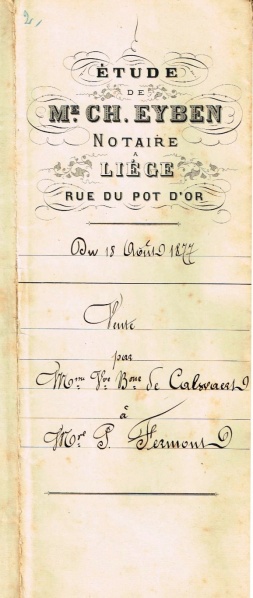 2
ÉTUDE
DE
ME. CH. EYBEN
NOTAIRE
A
LIÉGE
RUE DU POT D'OR
Du 18 Août 1877
Vente
par
Mme Vve Bonne de Calwaert
à
Mre P. Fermont